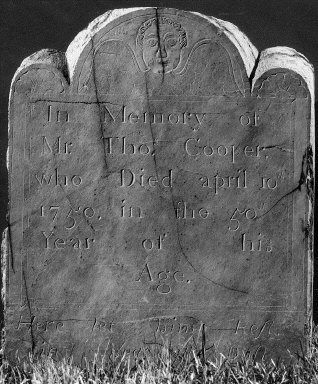 In Memory of
Mr. Tho. Cooper,
who Died april 10th
1750, in the 50th
Year of his
Age.
Here